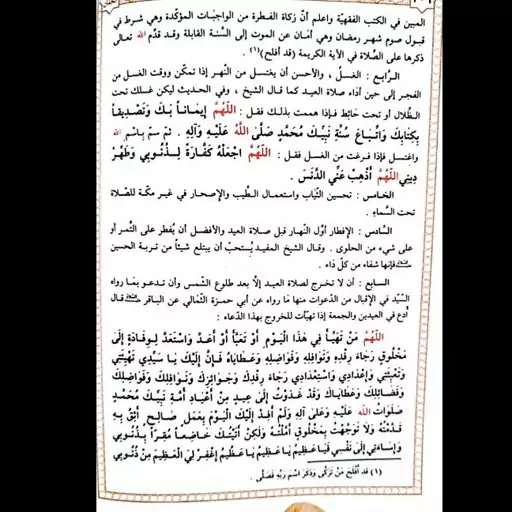 المبين في الكتب الفقهيّة واعلم أنّ زكاة الفطرة من الواجبات المؤكّدة وهي شرط في
قبول صوم شهر رمضان وهي أمان عن الموت إلى السّنة القابلة وقد قدّم الله تعالى
ذكرها على الصّلاة في الآية الكريمة (قد أفلح)(١) .
الرّابع : الغسلُ ، والأحسن أن يغتسل من النّهر إذا تمكّن ووقت الغسل من
الفجر إلى حين أداء صلاة العيد كما قال الشيخ ، وفي الحديث ليكن غسلك تحت
الظّلال أو تحت حائط فإذا هممت بذلك فقل : اللّهُمَّ إيمَاناً بِكَ وَتَصْدِيقاً
بِكِتَابِكَ وَاتِّبَاعَ سُنَّةِ نَبِيِّكَ مُحَمَّدٍ صَلَّى اللَّهُ عَلَيْهِ وَآلِهِ . ثم سمّ بِاسْمِ الله
واغتسل فإذا فرغت من الغسل فقل : اللّهُمَّ اجْعَلْهُ كَفَّارَةً لِذُنُوبِي وَطَهِّرْ
دِينِي اللّهُمَّ أَذْهِبْ عَنِّي الدَّنَسَ .
الخامس : تحسين الثّياب واستعمال الطّيب والإصحار في غير مكّة للصّلاة
تحت السّماءِ .
السّادس : الإفطار أوّل النّهار قبل صلاة العيد والأفضل أن يُفطر على التّمر أو
على شيء من الحلوى . وقال الشيخ المفيد يُستحبّ أن يبتلع شيئاً من تربة الحسين
فإنها شفاء من كلّ داء .
السّابع : أن لا تخرج لصلاة العيد إلّا بعد طلوع الشّمس وأن تدعو بما رواه
السّيّد في الإقبال من الدّعوات منها ما رواه عن أبي حمزة الثّمالي عن الباقر قال
أدع في العيدين والجمعة إذا تهيّأت للخروج بهذا الدّعاء :
اللّهُمَّ مَنْ تَهَيَّأَ فِي هَذَا الْيَوْمِ أَوْ تَعَبَّأَ أَوْ أَعَدَّ وَاسْتَعَدَّ لِوِفَادَةٍ إِلَى
مَخْلُوقٍ رَجَاءَ رِفْدِهِ وَنَوَافِلِهِ وَفَوَاضِلِهِ وَعَطَايَاهُ فَإِنَّ إِلَيْكَ يَا سَيِّدِي تَهْيِئَتِي
وَتَعْبِئَتِي وَإِعْدَادِي وَاسْتِعْدَادِي رَجَاءَ رِفْدِكَ وَجَوَائِزِكَ وَنَوَافِلِكَ وَفَوَاضِلِكَ
وَفَضَائِلِكَ وَعَطَايَاكَ وَقَدْ غَدَوْتُ إِلَى عِيدٍ مِنْ أَعْيَادِ أُمَّةِ نَبِيِّكَ مُحَمَّدٍ
صَلَوَاتُ الله عَلَيْهِ وَعَلَى آلِهِ وَلَمْ أَفِدْ إِلَيْكَ الْيَوْمَ بِعَمَلٍ صَالِحٍ أَثِقُ بِهِ
قَدَّمْتُهُ وَلَا تَوَجَّهْتُ بِمَخْلُوقٍ أَمَّلْتُهُ وَلَكِنْ أَتَيْتُكَ خَاضِعاً مُقِرّاً بِذُنُوبِي
وَإِسَاءَتِي إِلَى نَفْسِي فَيَا عَظِيمُ يَا عَظِيمُ يَا عَظِيمُ إِغْفِرْ لِيَ الْعَظِيمَ مِنْ ذُنُوبِي
(١) قَدْ أَفْلَحَ مَنْ تَزَكَّى وَذَكَرَ اسْمَ رَبِّهِ فَصَلَّى .